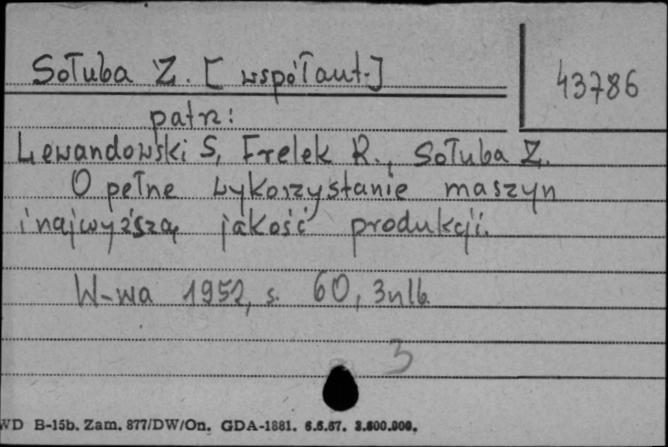 Sołuba Z. [współaut.]
43786
patrz:
Lewandowski S, Frelek R., Sołuba Z.
O pełne wykorzystanie maszyn
i najwyższą jakość produkcji.
W-wa 1952, s. 60, 3nlb.
3
WD B-15b. Zam. 877/DW/On. GDA-1881. 6.5.67. 3.600.000.